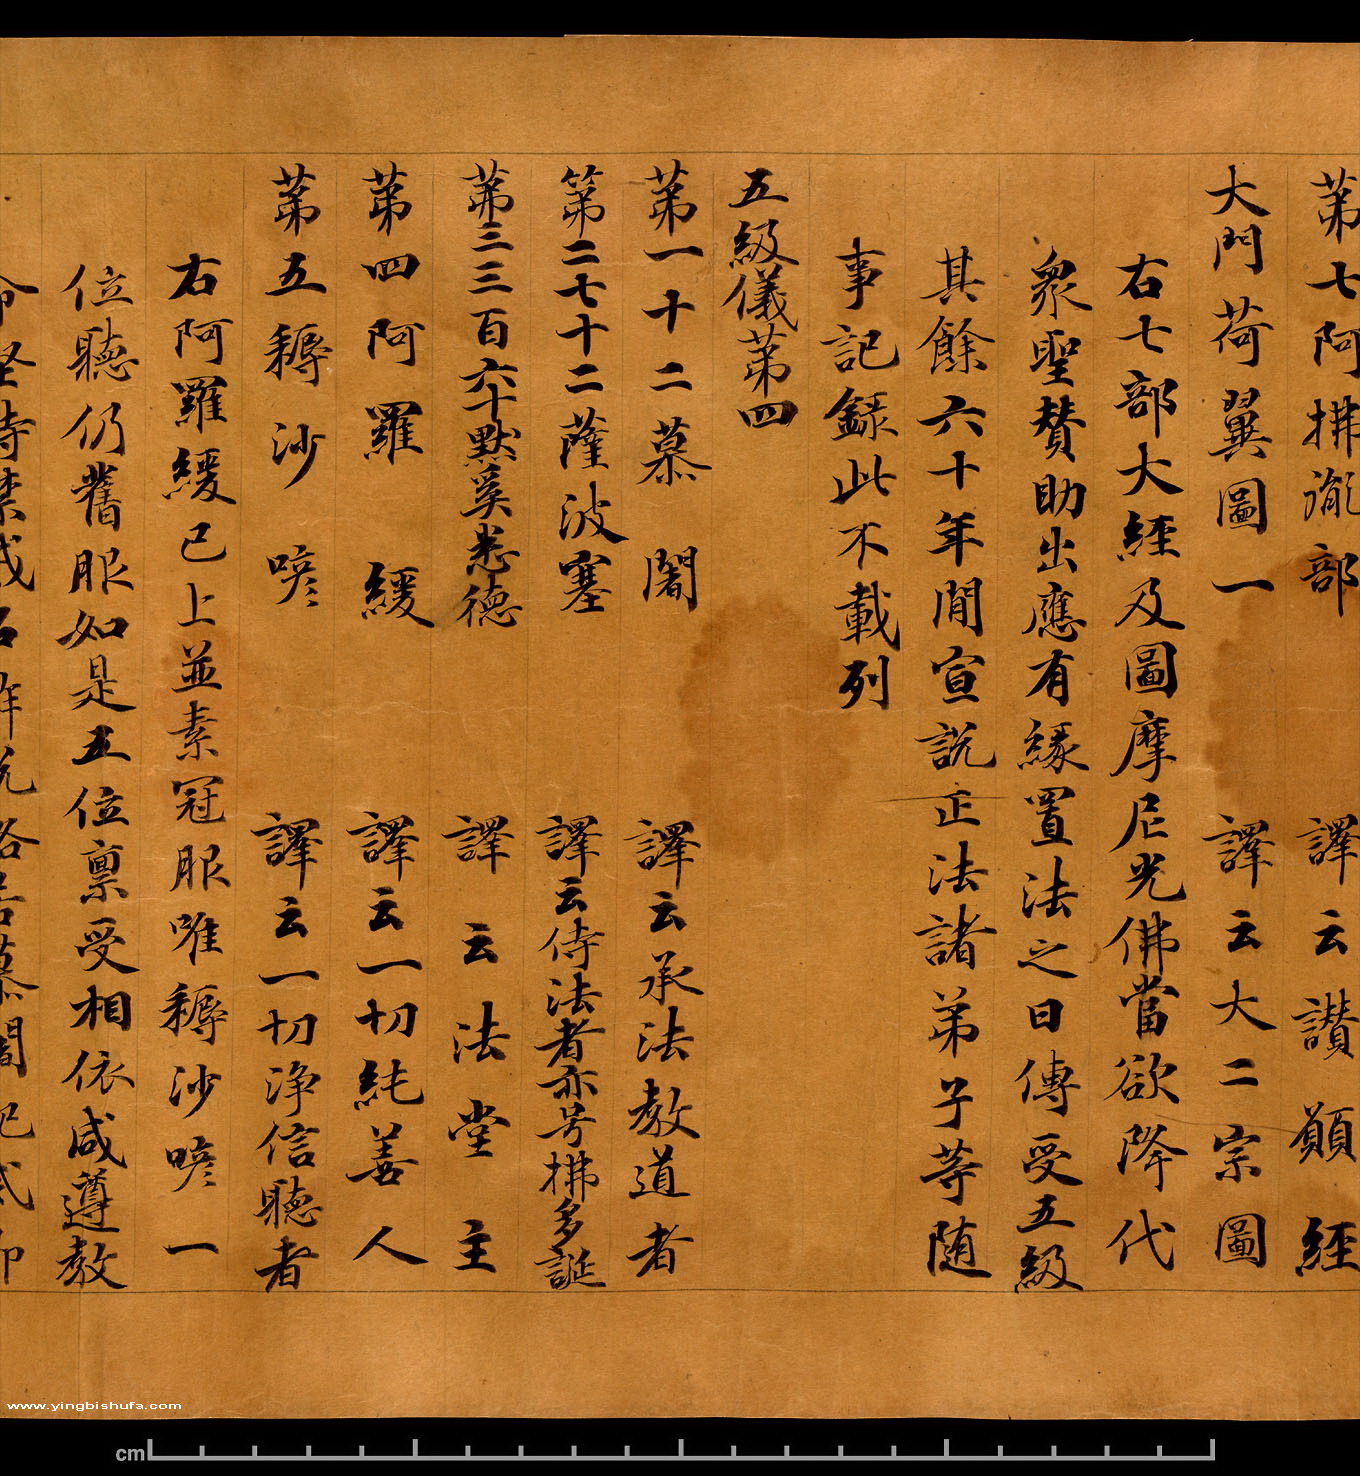 第七阿拂胤部 譯云讃願經
大門荷翼圖一 譯云大二宗圖
右七部大經及圖摩尼光佛當欲降代
衆聖賛助出應有緣置法之日傳受五級
其餘六十年閒宣說正法諸弟子等随
事記録此不載列
五級儀第四
第一十二慕闍 譯云承法教道者
第二七十二薩波塞 譯云侍法者亦号拂多誕
第三三百六十默奚悉德 譯云法堂主
第四阿羅緩 譯云一切純善人
第五耨沙喭 譯云一切淨信聽者
右阿羅緩已上並素冠服唯耨沙喭一
位聽仍舊服如是五位禀受相依咸遵教
命堅持禁戒名解脫路若慕闍犯戒即
www.yingbishufa.com
cm